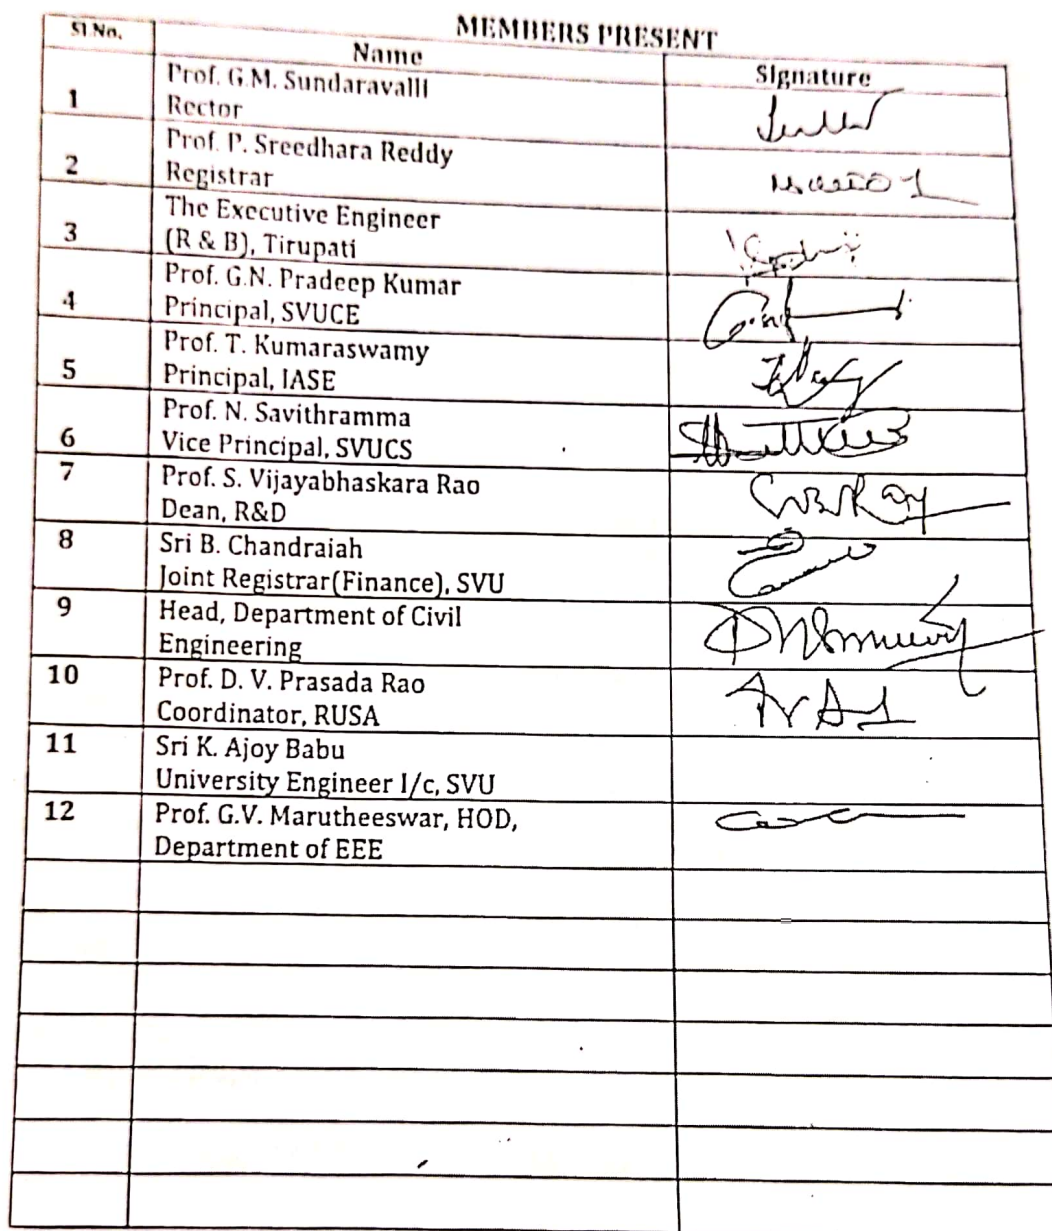 MEMBERS PRESENT
Sl.No.
Name
Signature
1
Prof. G.M. Sundaravalli
Rector
2
Prof. P. Sreedhara Reddy
Registrar
3
The Executive Engineer
(R & B), Tirupati
4
Prof. G.N. Pradeep Kumar
Principal, SVUCE
5
Prof. T. Kumaraswamy
Principal, IASE
6
Prof. N. Savithramma
Vice Principal, SVUCS
7
Prof. S. Vijayabhaskara Rao
Dean, R&D
8
Sri B. Chandraiah
Joint Registrar(Finance), SVU
9
Head, Department of Civil
Engineering
10
Prof. D. V. Prasada Rao
Coordinator, RUSA
11
Sri K. Ajoy Babu
University Engineer I/c, SVU
12
Prof. G.V. Marutheeswar, HOD,
Department of EEE